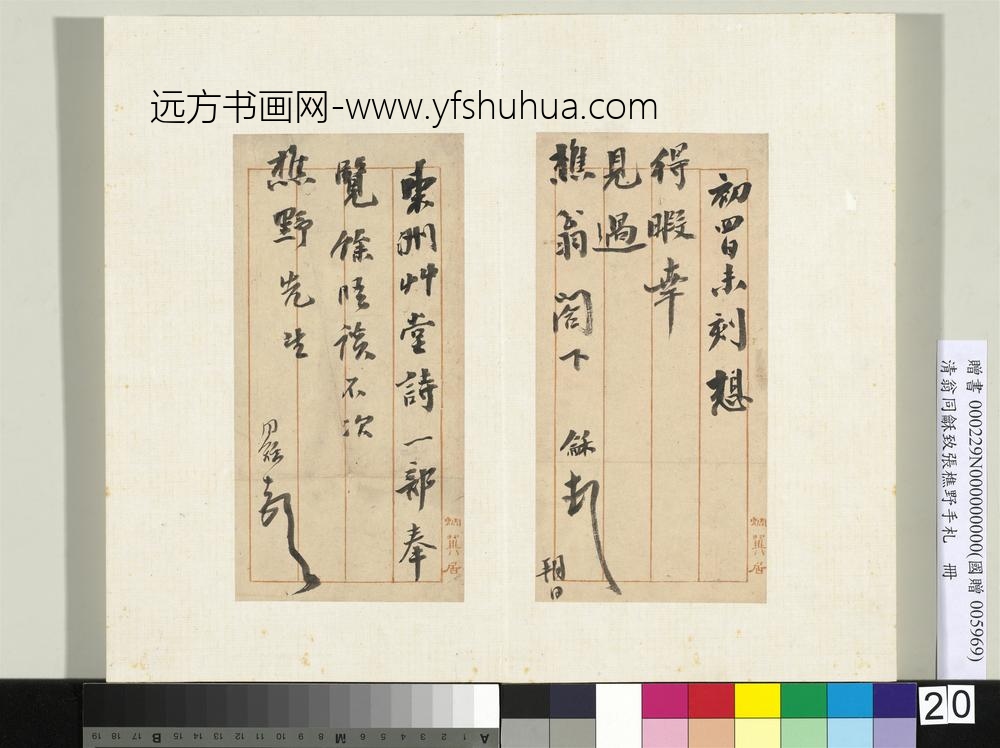 远方书画网-www.yfshuhua.com
初四日未刻想
得暇幸
見過
樵翁閣下 龢頓
朔日
東洲艸堂詩一部奉
覽餘晤談不次
樵野先生
同龢頓
贈書 000229N000000000(國贈 005969)
清翁同龢致張樵野手札 冊
20
19 18 17 16 15 B 14 13 12 11 10 9 8 7 M 6 5 4 3 2 1 A